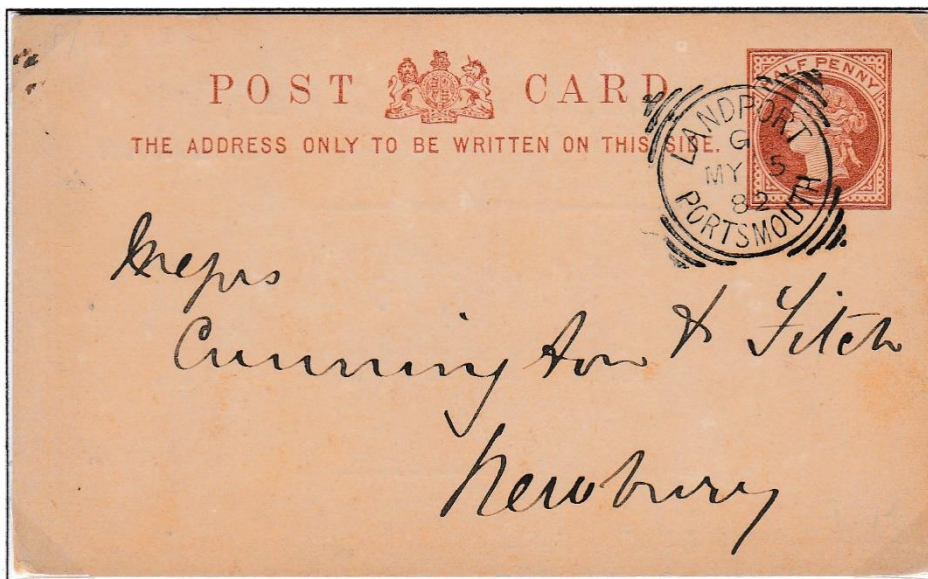 POST CARD
THE ADDRESS ONLY TO BE WRITTEN ON THIS SIDE.
HALF PENNY
LANDPORT
G
MY 5
82
PORTSMOUTH
Messrs
Cunnington & Fitch
Newbury